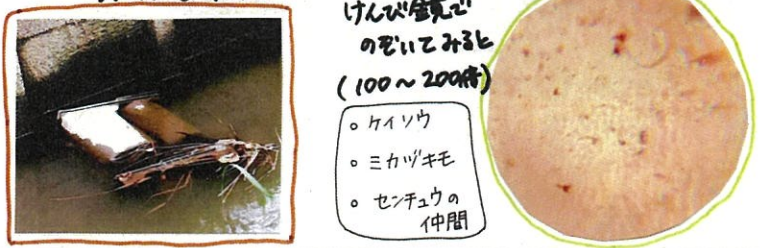 けんび鏡で
のぞいてみると
(100～200倍)
○ケイソウ
○ミカヅキモ
○センチュウの
仲間